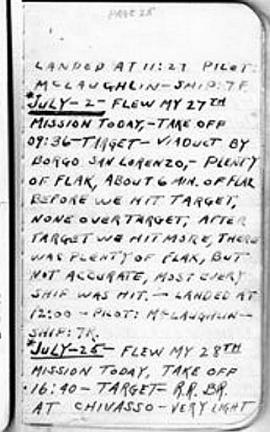 PAGE 25
LANDED AT 11:27 PILOT:
McLAUGHLIN - SHIP: 7F.
*JULY-2- FLEW MY 27TH
MISSION TODAY,- TAKE OFF
09:36 - TARGET - VIADUCT BY
BORGO SAN LORENZO,- PLENTY
OF FLAK, ABOUT 6 MIN. OF FLAK
BEFORE WE HIT TARGET,
NONE OVER TARGET, AFTER
TARGET WE HIT MORE, THERE
WAS PLENTY OF FLAK, BUT
NOT ACCURATE, MOST EVERY
SHIP WAS HIT. - LANDED AT
12:00 - PILOT: McLAUGHLIN -
SHIP: 7K.
*JULY-25- FLEW MY 28TH
MISSION TODAY, TAKE OFF
16:40 - TARGET - R.R. BR.
AT CHIVASSO - VERY LIGHT